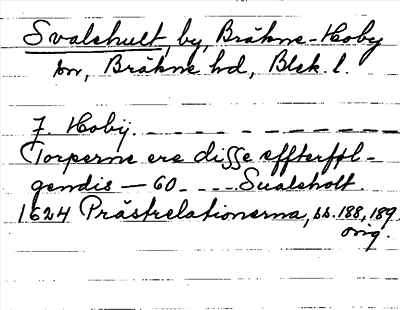 Svalehult, by, Bräkne-Hoby
sn, Bräkne hd, Blek. l.
J. Hobÿ. — — — — — — — —
Torperne ere diſse effterføl-
gendis — 60 - - - - Sualeholt
1624 Prästrelationerna, ss. 188, 189
orig.